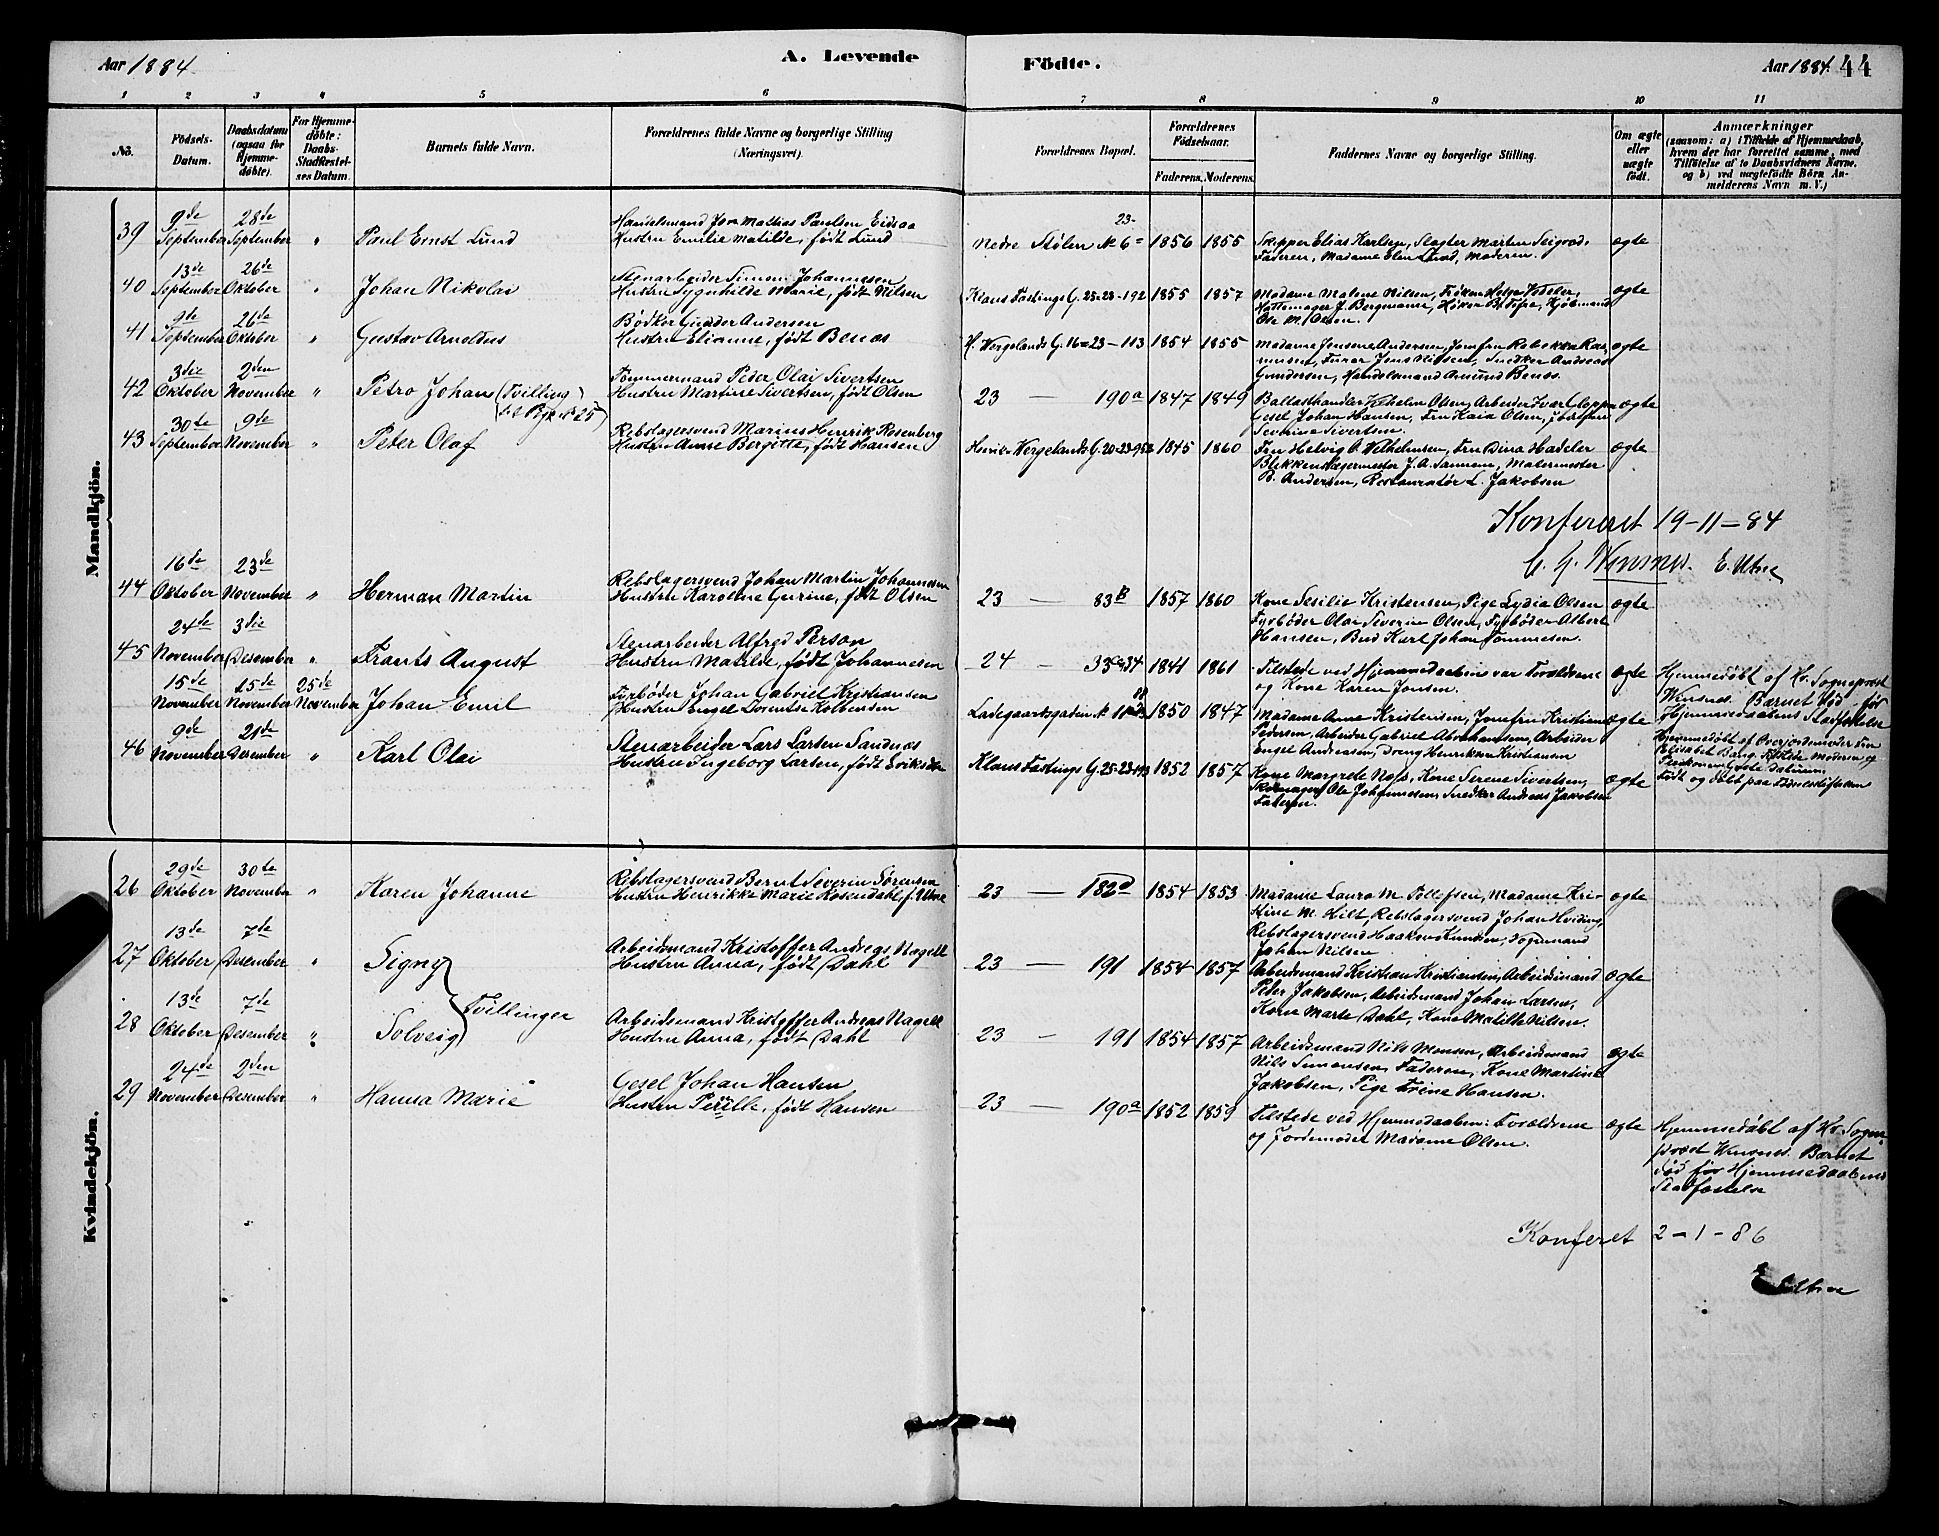 Aar 1884.
A. Levende Födte.
Aar 1884. 44
1 2 3 4 5 6 7 8 9 10 11
No.
Födsels-Datum.
Daabsdatum (ogsaa for Hjemmedöbte).
For Hjemmedöbte: Daabs-Stadfæstelses Datum.
Barnets fulde Navn.
Forældrenes fulde Navne og borgerlige Stilling (Næringsvei).
Forældrenes Bopæl.
Forældrenes Födselsaar.
Faderens. Moderens.
Faddernes Navne og borgerlige Stilling.
Om ægte eller uægte födt.
Anmærkninger
(saasom: a) i Tilfælde af Hjemmedaab, hvem der har forrettet samme, med Tilföielse af to Daabsvidners Navne, og b) ved uægtefödte Börn Anmelderens Navn m. V.)
Mandkjön.
39 9de September 28de September " Paul Ernst Lund
Handelsmand Jon Mathias Paulsen Eidsaa
Hustru Emilie Matilde, født Lund
23-
Nedre Stølen № 6= 1856 1855
Skipper Elias Karlsen, Slagter Marten
Faderen, Madame Elen Lund, Moderen.
ægte
40 13de September 26de Oktober " Johan Nikolai
Stenarbeider Simon Johannesen
Hustru Sygnhilde Marie, født Nilsen
Klaus Fastings G. 25-23-192 1855 1857
Madame Malene Nilsen, Frøken Helga
Hattemager J. Bergmann, Høker Kjøbmand
Ole M. Olsen.
ægte
41 9de September 26de Oktober " Gustav Arnoldus
Bødker Gunder Andersen
Hustru Elianne, født Benes
H. Vergelands G. 16=23-113 1854 1855
Madame Jensine Andersen, Jomfru Rebekka Ras-
musen, Jens Nilsen, Snedker Andreas
Gundersen, Handelsmand Amund Benes.
ægte
42 3die Oktober 2den November " Petro Johan (Tvilling
25)
Tømmermand Peder Olai Sivertsen
Hustru Martine Sivertsen, født Olsen
23 — 190a 1847 1849
Ballasthandler Vilhelm Olsen, Arbeider Ivar Gloppen
Gesel Johan Hansen, Fru Kaia Olsen, Jomfru
Severine Sivertsen.
ægte
43 30te September 9de November " Peter Olaf
Rebslagersvend Marius Henrik Rosenberg
Hustru Anne Bergitte, født Hansen
Henrik Vergelands G. 20-23-95 1845 1860
Fru Helvig O. Vilhelmsen, Fru Dina Hadeler
Blikkenslagermester J. A. Sannem, Malermester
B. Andersen, Restauratør L. Jakobsen
ægte
Konfereret 19-11-84
E. Utne
44 16de Oktober 23de November " Herman Martin
Rebslagersvend Johan Martin Johannesen
Hustru Karoline Gurine, født Olsen
23 — 83B 1857 1860
Kone Sesilie Kristensen, Pige Lydia Olsen
Fyrbøder Olai Severin Olsen, Fyrbøder Albert
Hansen, Bud Karl Johan Tommesen.
ægte
45 24de November 3die Desember " Frants August
Stenarbeider Alfred Person
Hustru Matilde, født Johannesen
24 — 33 1841 1861
Tilstede ved Hjemmedaaben var Forældrene
og Kone Karen Jonsen.
ægte
Hjemmedøbt af Hr. Sogneprest
Barnet død før
Hjemmedaabens Stadfæstelse
15de November 15de November 25de November Johan Emil
Fyrbøder Johan Gabriel Kristiansen
Hustru Engel Dorentse Kolbensen
Ladegaardsgaden № 11 1850 1847
Madame Anne Kristensen, Jomfru Kristiane
Pedersen, Arbeider Gabriel Abrahamsen, Arbeider
Engel Andreasen, Dreng Henrik Kristiansen
ægte
Hjemmedøbt af Overjordemoder Fru
Elisabet Bang. Tilstede Moderen og
Født og døbt paa Fødselsstiftelsen
46 9de November 21de Desember " Karl Olai
Stenarbeider Lars Larsen Sandnæs
Hustru Ingeborg Larsen, født Eriksdtr
Klaus Fastings G. 25-23-193 1852 1857
Kone Margrete Næss, Kone Serene Sivertsen,
Skomager Ole Johannesen, Snedker Andreas Jakobsen
Faderen.
ægte
Kvindekjön.
26 29de Oktober 30te November " Karen Johanne
Rebslagersvend Bernt Severin Sørensen
Hustru Henrikke Marie Rosendahl, f. Utne
23 — 182d 1854 1853
Madame Laura M. Tollefsen, Madame Kri-
stine M. Hilt, Rebslagersvend Johan Hviding,
Rebslagersvend Haakon Knudsen, Sømand
Johan Nilsen
ægte
27 13de Oktober 7de Desember " Signy
Arbeidsmand Kristoffer Andreas Nagell
Hustru Anna, født Dahl
23 — 191 1854 1857
Arbeidsmand Kristian Kristiansen, Arbeidsmand
Peder Jakobsen, Arbeidsmand Johan Larsen,
Kone Marte Dahl, Kone Matilde Nilsen.
ægte
Tvillinger
28 13de Oktober 7de Desember " Solveig
Arbeidsmand Kristoffer Andreas Nagell
Hustru Anna, født Dahl
23 — 191 1854 1857
Arbeidsmand Nils Monsen, Arbeidsmand
Nils Simonsen, Faderen, Kone Martine
Jakobsen, Pige Trine Hansen.
ægte
29 24de November 2den Desember " Hanna Marie
Gesel Johan Hansen
Hustru Pernille, født Hansen
23 — 190a 1852 1859
Tilstede ved Hjemmedaaben: Forældrene
og Jordemoder Madame Olsen.
ægte
Hjemmedøbt af Hr. Sogne-
prest Barnet
død før Hjemmedaabens
Stadfæstelse
Konferet 2-1-86
E. Utne